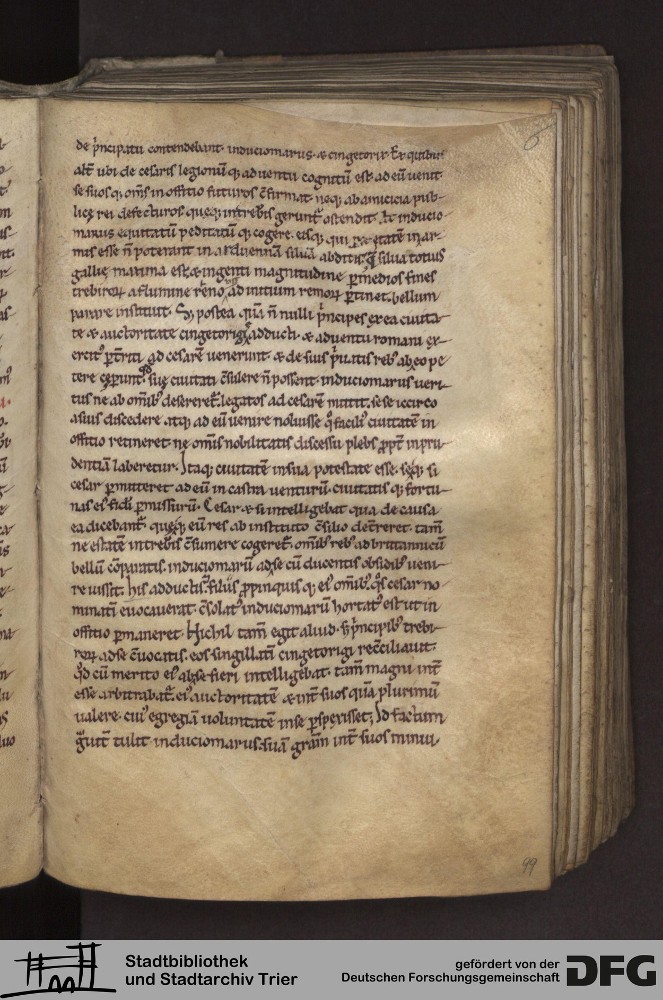 de p̄ncipatu contendebant· induciomarus· & cingetorix· Ex quibus
alt̄ ubi de cesaris legionū q; adventu cognitū est· ad eū venit·
se suos q; om̄s in offitio futuros c̄firmat· neq; ab amicicia pub-
licę rei defecturos· quęq; in treb̄is gerunt᷑ ostendit· At inducio-
marus equitatū peditatū q; cogere· eisq; qui p̱ ętatē in ar-
mis esse n̄ poterant in arduennā silvā abditis· q̄ silva totius
gallię maxima est· & ingenti magnitudine p̱ medios fines
trebiroꝝ a flumine reno· ad initium remoꝝ p̱tinet· bellum
parare instituit· S; postea quā n̄ nulli p̄ncipes ex ea civita-
te & auctoritate cingetorigis adducti· & adventu romani ex-
ercit᷒ p̱t̄riti ad cesarē venerunt· & de suis p̄vatis reb᷒ ab eo pe
tere cęperunt· suę civitati c̄sulere n̄ possent· induciomarus veri-
tus ne ab omib᷒ desereret᷑· legatos ad cesarē mittit· sese iccirco
a suis discedere atq; ad eū venire noluisse q̊ facili᷒ civitatē in
offitio retineret· ne om̄is nobilitatis discessu plebs p̱pt̄ inpru-
dentiā laberetur· Itaq; civitatē in sua potestate esse· seq; si
cesar p̱mitteret ad eū in castra venturū· civitatis q; fortu-
nas ei᷒ fidei p̱missurū· Cesar & si intelligebat qua de causa
ea dicebant᷑· quęq; eū res ab instituto c̄silio det̄reret· tam̄
ne estatē in treb̄is c̄sumere cogeret᷑· omib᷒ reb᷒ ad brittannicū
bellū c̄paratis· induciomarū ad se cū ducentis obsidib᷒ veni-
re iussit· his adductis· filiis p̱pinquis q; ei᷒ omib᷒· q̊s cesar no-
minatī evocaverat· c̄solat᷒ induciomarū hortat᷒ est ut in
offitio p̱maneret· Nichil tam̄ egit aliud· s; p̄ncipib᷒ trebi-
roꝝ ad se c̄vocatis· eos singillatī cingetorigi rec̄ciliavit·
q̊d cū merito ei᷒ ab se fieri intelligebat· tam̄ magni int̄
esse arbitrabat᷑· ei᷒ auctoritatē & int̄ suos quā plurimū
valere· cui᷒ egregiā voluntatē in se p̱spexisset; Id factum
gᷓvit̄ tulit induciomarus· suā gr̄am int̄ suos minui
99
Stadtbibliothek
und Stadtarchiv Trier
gefördert von der
Deutschen Forschungsgemeinschaft
DFG